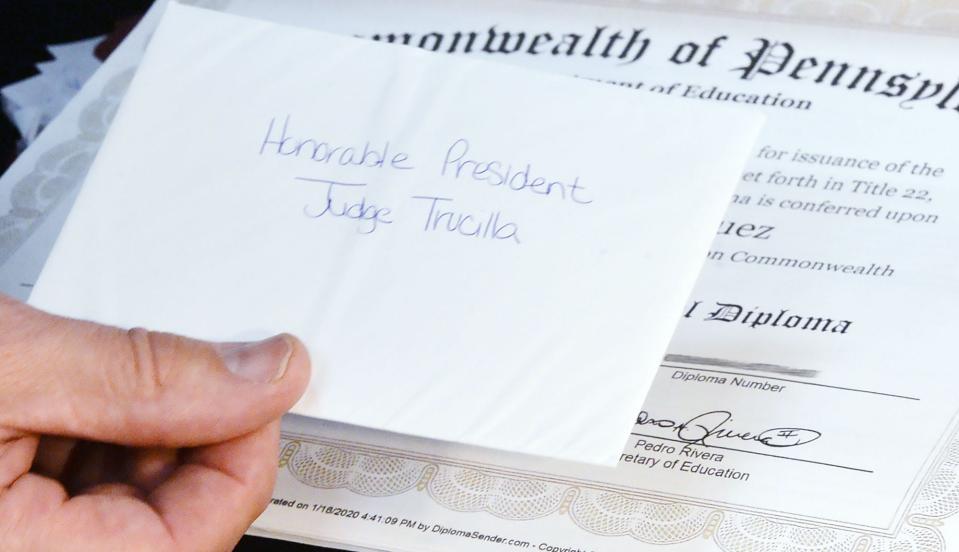 Honorable President
Judge Trucilla
monwealth of Pennsyl
of Education
for issuance of the
et forth in Title 22,
is conferred upon
uez
on Commonwealth
l Diploma
Diploma Number
Pedro Rivera
retary of Education
rated on 1/18/2020 4:41:09 PM by DiplomaSender.com - Copyright